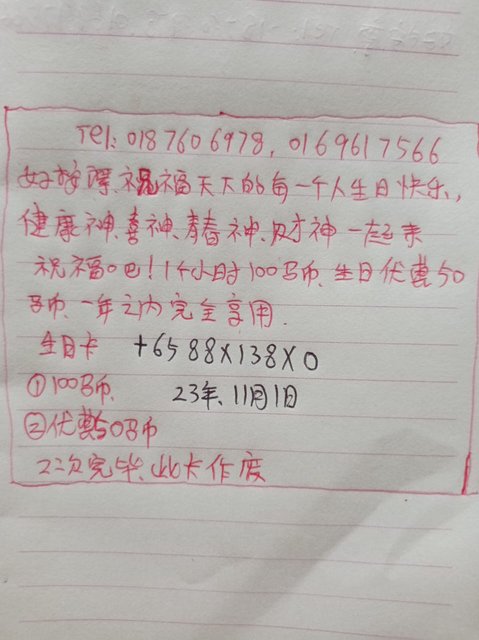 Tel: 018 760 6978, 016 961 7566
好按摩、祝福天下的每一个人生日快乐,
健康神、喜神、青春神、财神一起来
祝福吧!1个小时100马币、生日优惠50
马币、一年之内完全享用.
生日卡 +65 88X138X0
①100马币、 23年、11月1日
②优惠50马币
2二次完毕、此卡作废